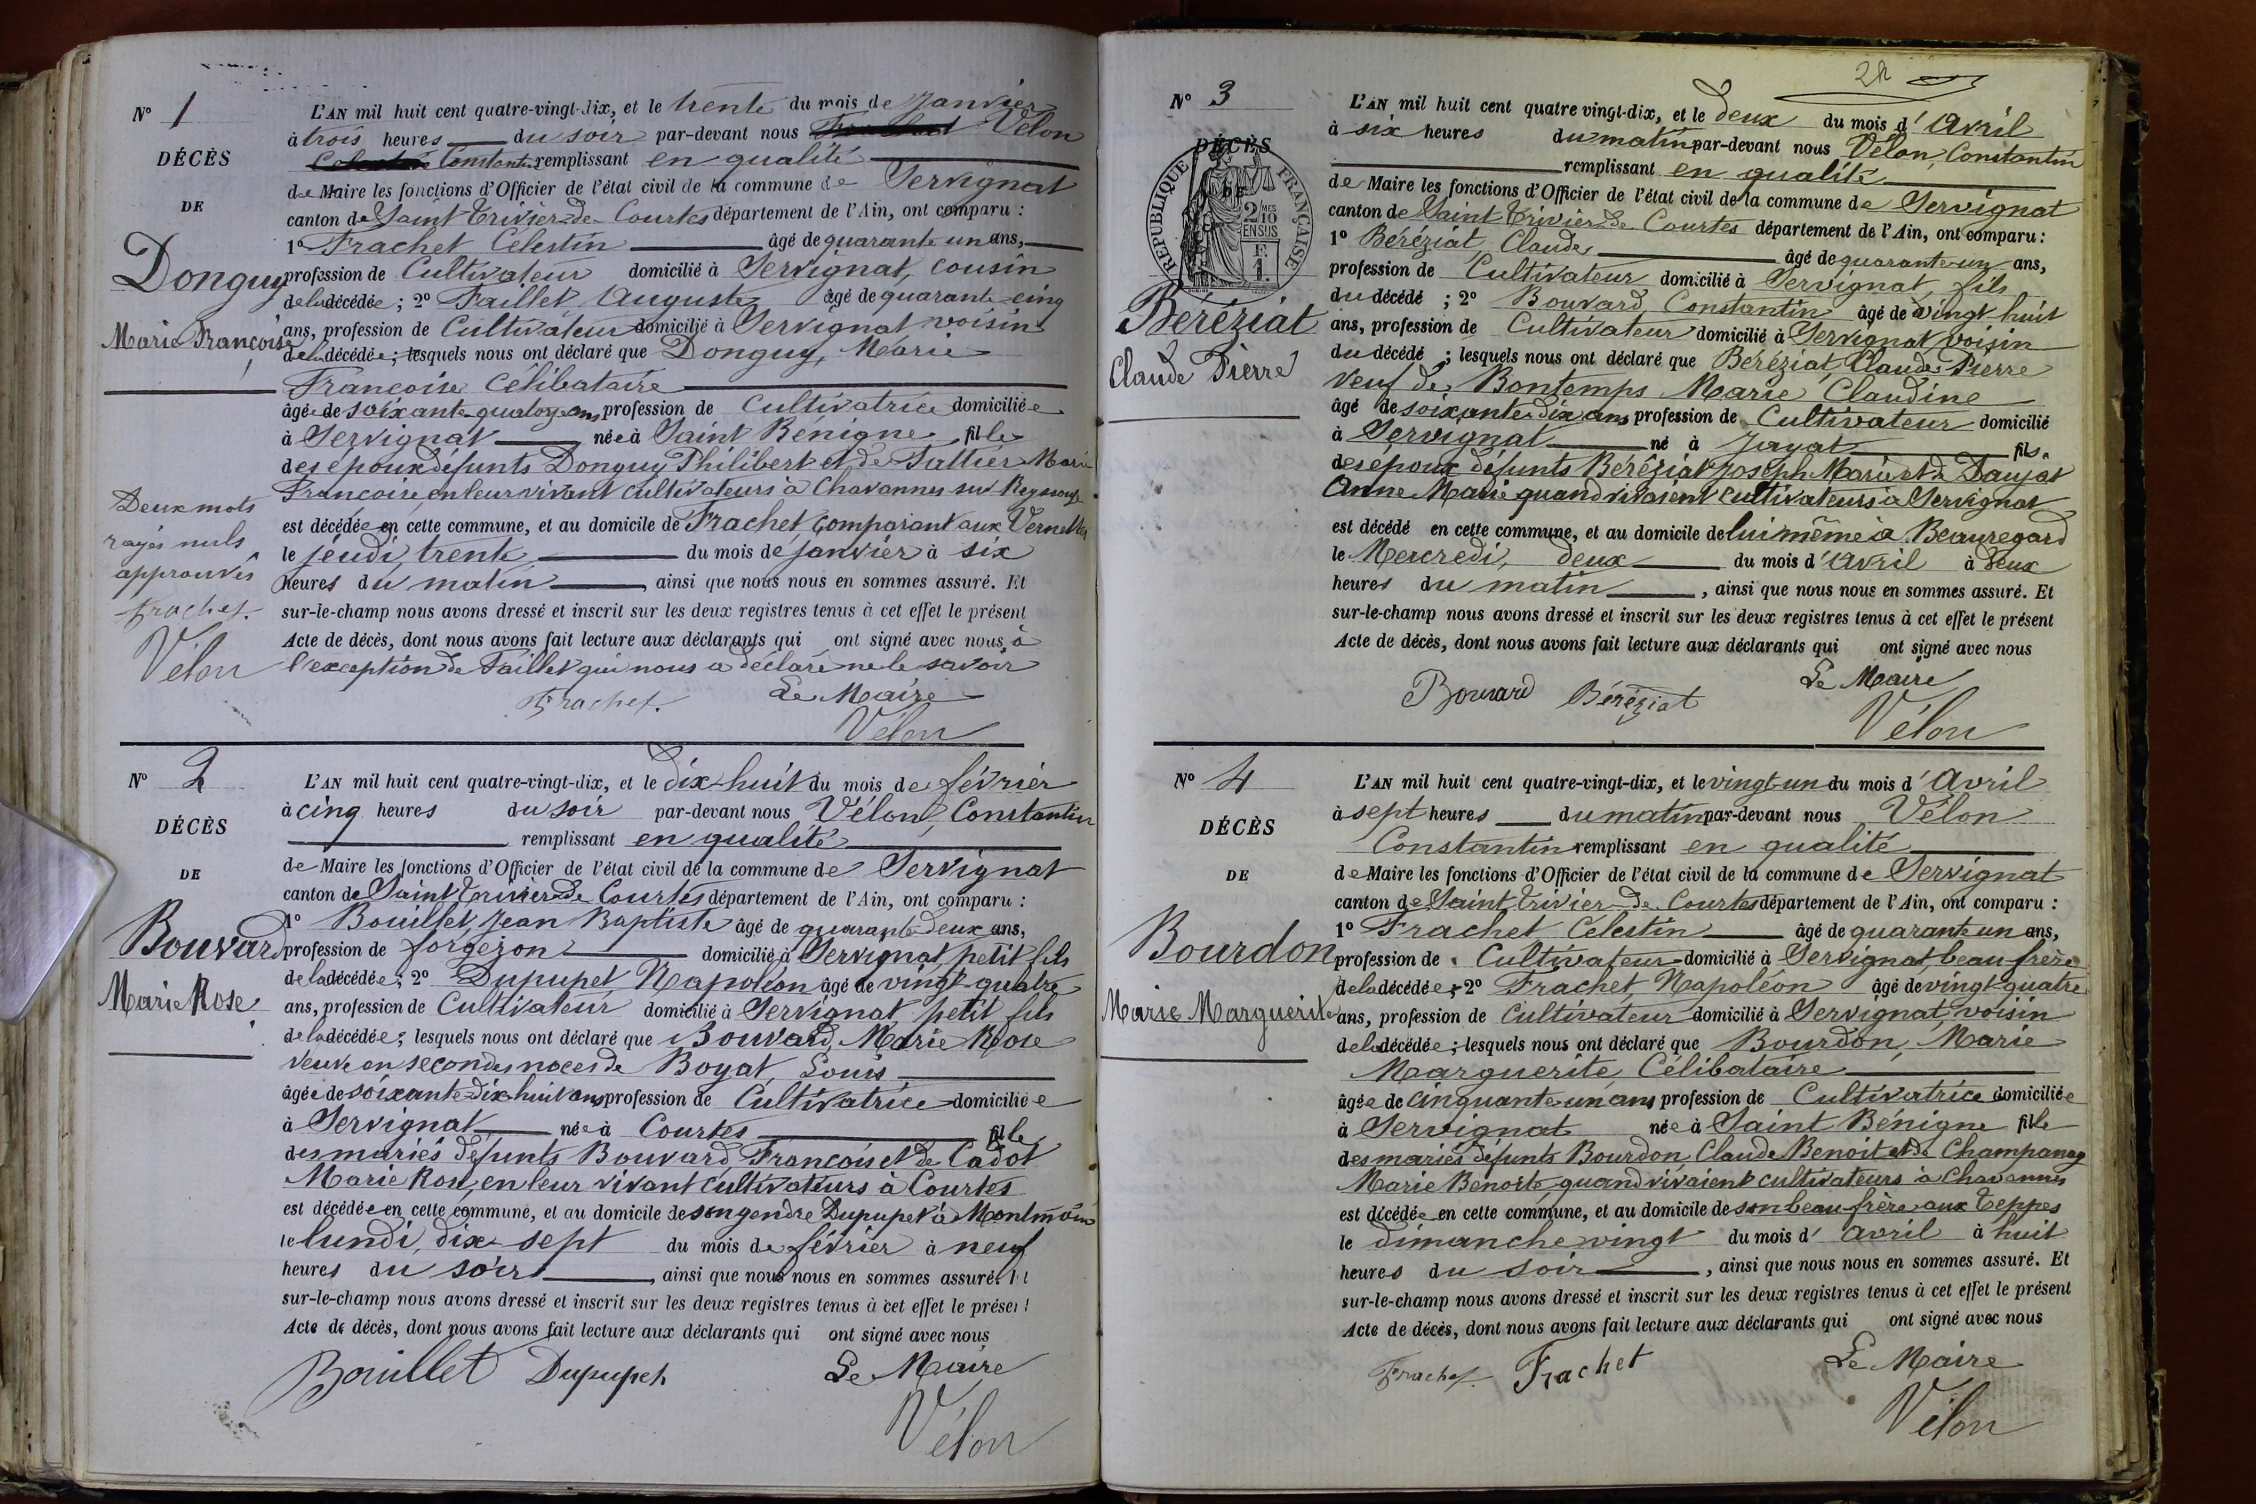 N° 1
DÉCÈS
DE
Donguy
Marie Françoise
Deux mots
rayés nuls
approuvés
Frachet.
Vélon
L'AN mil huit cent quatre-vingt-dix, et le trente du mois de Janvier
à trois heures du soir par-devant nous Vélon
Constantin remplissant en qualité
de Maire les fonctions d'Officier de l'état civil de la commune de Servignat
canton de Saint Trivier-de-Courtes département de l'Ain, ont comparu :
1° Frachet Célestin âgé de quarante un ans,
profession de Cultivateur domicilié à Servignat, cousin
de la décédée ; 2° Faillet, Auguste âgé de quarante-cinq
ans, profession de Cultivateur domicilié à Servignat voisin
de la décédée ; lesquels nous ont déclaré que Donguy, Marie
Françoise Célibataire
âgée de soixante-quatorze ans profession de Cultivatrice domiciliée
à Servignat née à Saint Bénigne fille
des époux défunts Donguy Philibert et de Marie
Françoise, en leur vivant cultivateurs à Chavannes sur Reyssouze
est décédée en cette commune, et au domicile de Frachet, comparant aux Vernettes
le jeudi, trente du mois de janvier à six
heures du matin, ainsi que nous nous en sommes assuré. Et
sur-le-champ nous avons dressé et inscrit sur les deux registres tenus à cet effet le présent
Acte de décès, dont nous avons fait lecture aux déclarants qui ont signé avec nous, à
l'exception de Faillet qui nous a déclaré ne le savoir
Frachet. Le Maire
Vélon
N° 2
DÉCÈS
DE
Bouvard
Marie Rose
L'AN mil huit cent quatre-vingt-dix, et le dix-huit du mois de février
à cinq heures du soir par-devant nous Vélon, Constantin
remplissant en qualité
de Maire les fonctions d'Officier de l'état civil de la commune de Servignat
canton de Saint Trivier-de-Courtes département de l'Ain, ont comparu :
1° Bouillet, Jean Baptiste âgé de quarante-deux ans,
profession de forgeron domicilié à Servignat, petit fils
de la décédée ; 2° Dupupet Napoléon âgé de vingt-quatre
ans, profession de Cultivateur domicilié à Servignat, petit fils
de la décédée ; lesquels nous ont déclaré que Bouvard, Marie Rose
veuve en secondes noces de Boyat, Louis
âgée de soixante-dix-huit ans profession de Cultivatrice domiciliée
à Servignat, née à Courtes fille
des mariés défunts Bouvard, François et de Cadot
Marie Rose, en leur vivant cultivateurs à Courtes
est décédée en cette commune, et au domicile de son gendre Dupupet à
le lundi, dix-sept du mois de février à neuf
heures du soir, ainsi que nous nous en sommes assuré. Et
sur-le-champ nous avons dressé et inscrit sur les deux registres tenus à cet effet le présent
Acte de décès, dont nous avons fait lecture aux déclarants qui ont signé avec nous
Bouillet Dupupet Le Maire
Vélon
N° 3
DÉCÈS
DE
RÉPUBLIQUE FRANÇAISE
2 MES 10 EN SUS
F. 1.
Béréziat
Claude Pierre
L'AN mil huit cent quatre vingt-dix, et le deux du mois d'Avril
à six heures du matin par-devant nous Vélon, Constantin
remplissant en qualité
de Maire les fonctions d'Officier de l'état civil de la commune de Servignat
canton de Saint Trivier-de-Courtes département de l'Ain, ont comparu :
1° Béréziat, Claude âgé de quarante un ans,
profession de Cultivateur domicilié à Servignat, fils
du décédé ; 2° Bouvard, Constantin âgé de vingt huit
ans, profession de Cultivateur domicilié à Servignat voisin
du décédé ; lesquels nous ont déclaré que Béréziat, Claude Pierre
veuf de Bontemps Marie Claudine
âgé de soixante dix ans profession de Cultivateur domicilié
à Servignat né à Jayat fils
des époux défunts Béréziat Joseph Marie et de Daujat
Anne Marie quand vivaient cultivateurs à Servignat
est décédé en cette commune, et au domicile de lui même à Beauregard
le Mercredi, deux du mois d'Avril à deux
heures du matin, ainsi que nous nous en sommes assuré. Et
sur-le-champ nous avons dressé et inscrit sur les deux registres tenus à cet effet le présent
Acte de décès, dont nous avons fait lecture aux déclarants qui ont signé avec nous
Bouvard Béréziat Le Maire
Vélon
N° 4
DÉCÈS
DE
Bourdon
Marie Marguerite
L'AN mil huit cent quatre-vingt-dix, et le vingt-un du mois d'Avril
à sept heures du matin par-devant nous Vélon
Constantin remplissant en qualité
de Maire les fonctions d'Officier de l'état civil de la commune de Servignat
canton de Saint Trivier-de-Courtes département de l'Ain, ont comparu :
1° Frachet Célestin âgé de quarante un ans,
profession de Cultivateur domicilié à Servignat, beau frère
de la décédée ; 2° Frachet, Napoléon âgé de vingt-quatre
ans, profession de Cultivateur domicilié à Servignat, voisin
de la décédée ; lesquels nous ont déclaré que Bourdon, Marie
Marguerite, Célibataire
âgée de cinquante un ans profession de Cultivatrice domiciliée
à Servignat née à Saint Bénigne fille
des mariés défunts Bourdon, Claude Benoit et de Champanay
Marie Benoite, quand vivaient cultivateurs à Chavannes
est décédée en cette commune, et au domicile de son beau frère aux Teppes
le dimanche vingt du mois d'Avril à huit
heures du soir, ainsi que nous nous en sommes assuré. Et
sur-le-champ nous avons dressé et inscrit sur les deux registres tenus à cet effet le présent
Acte de décès, dont nous avons fait lecture aux déclarants qui ont signé avec nous
Frachet Frachet Le Maire
Vélon